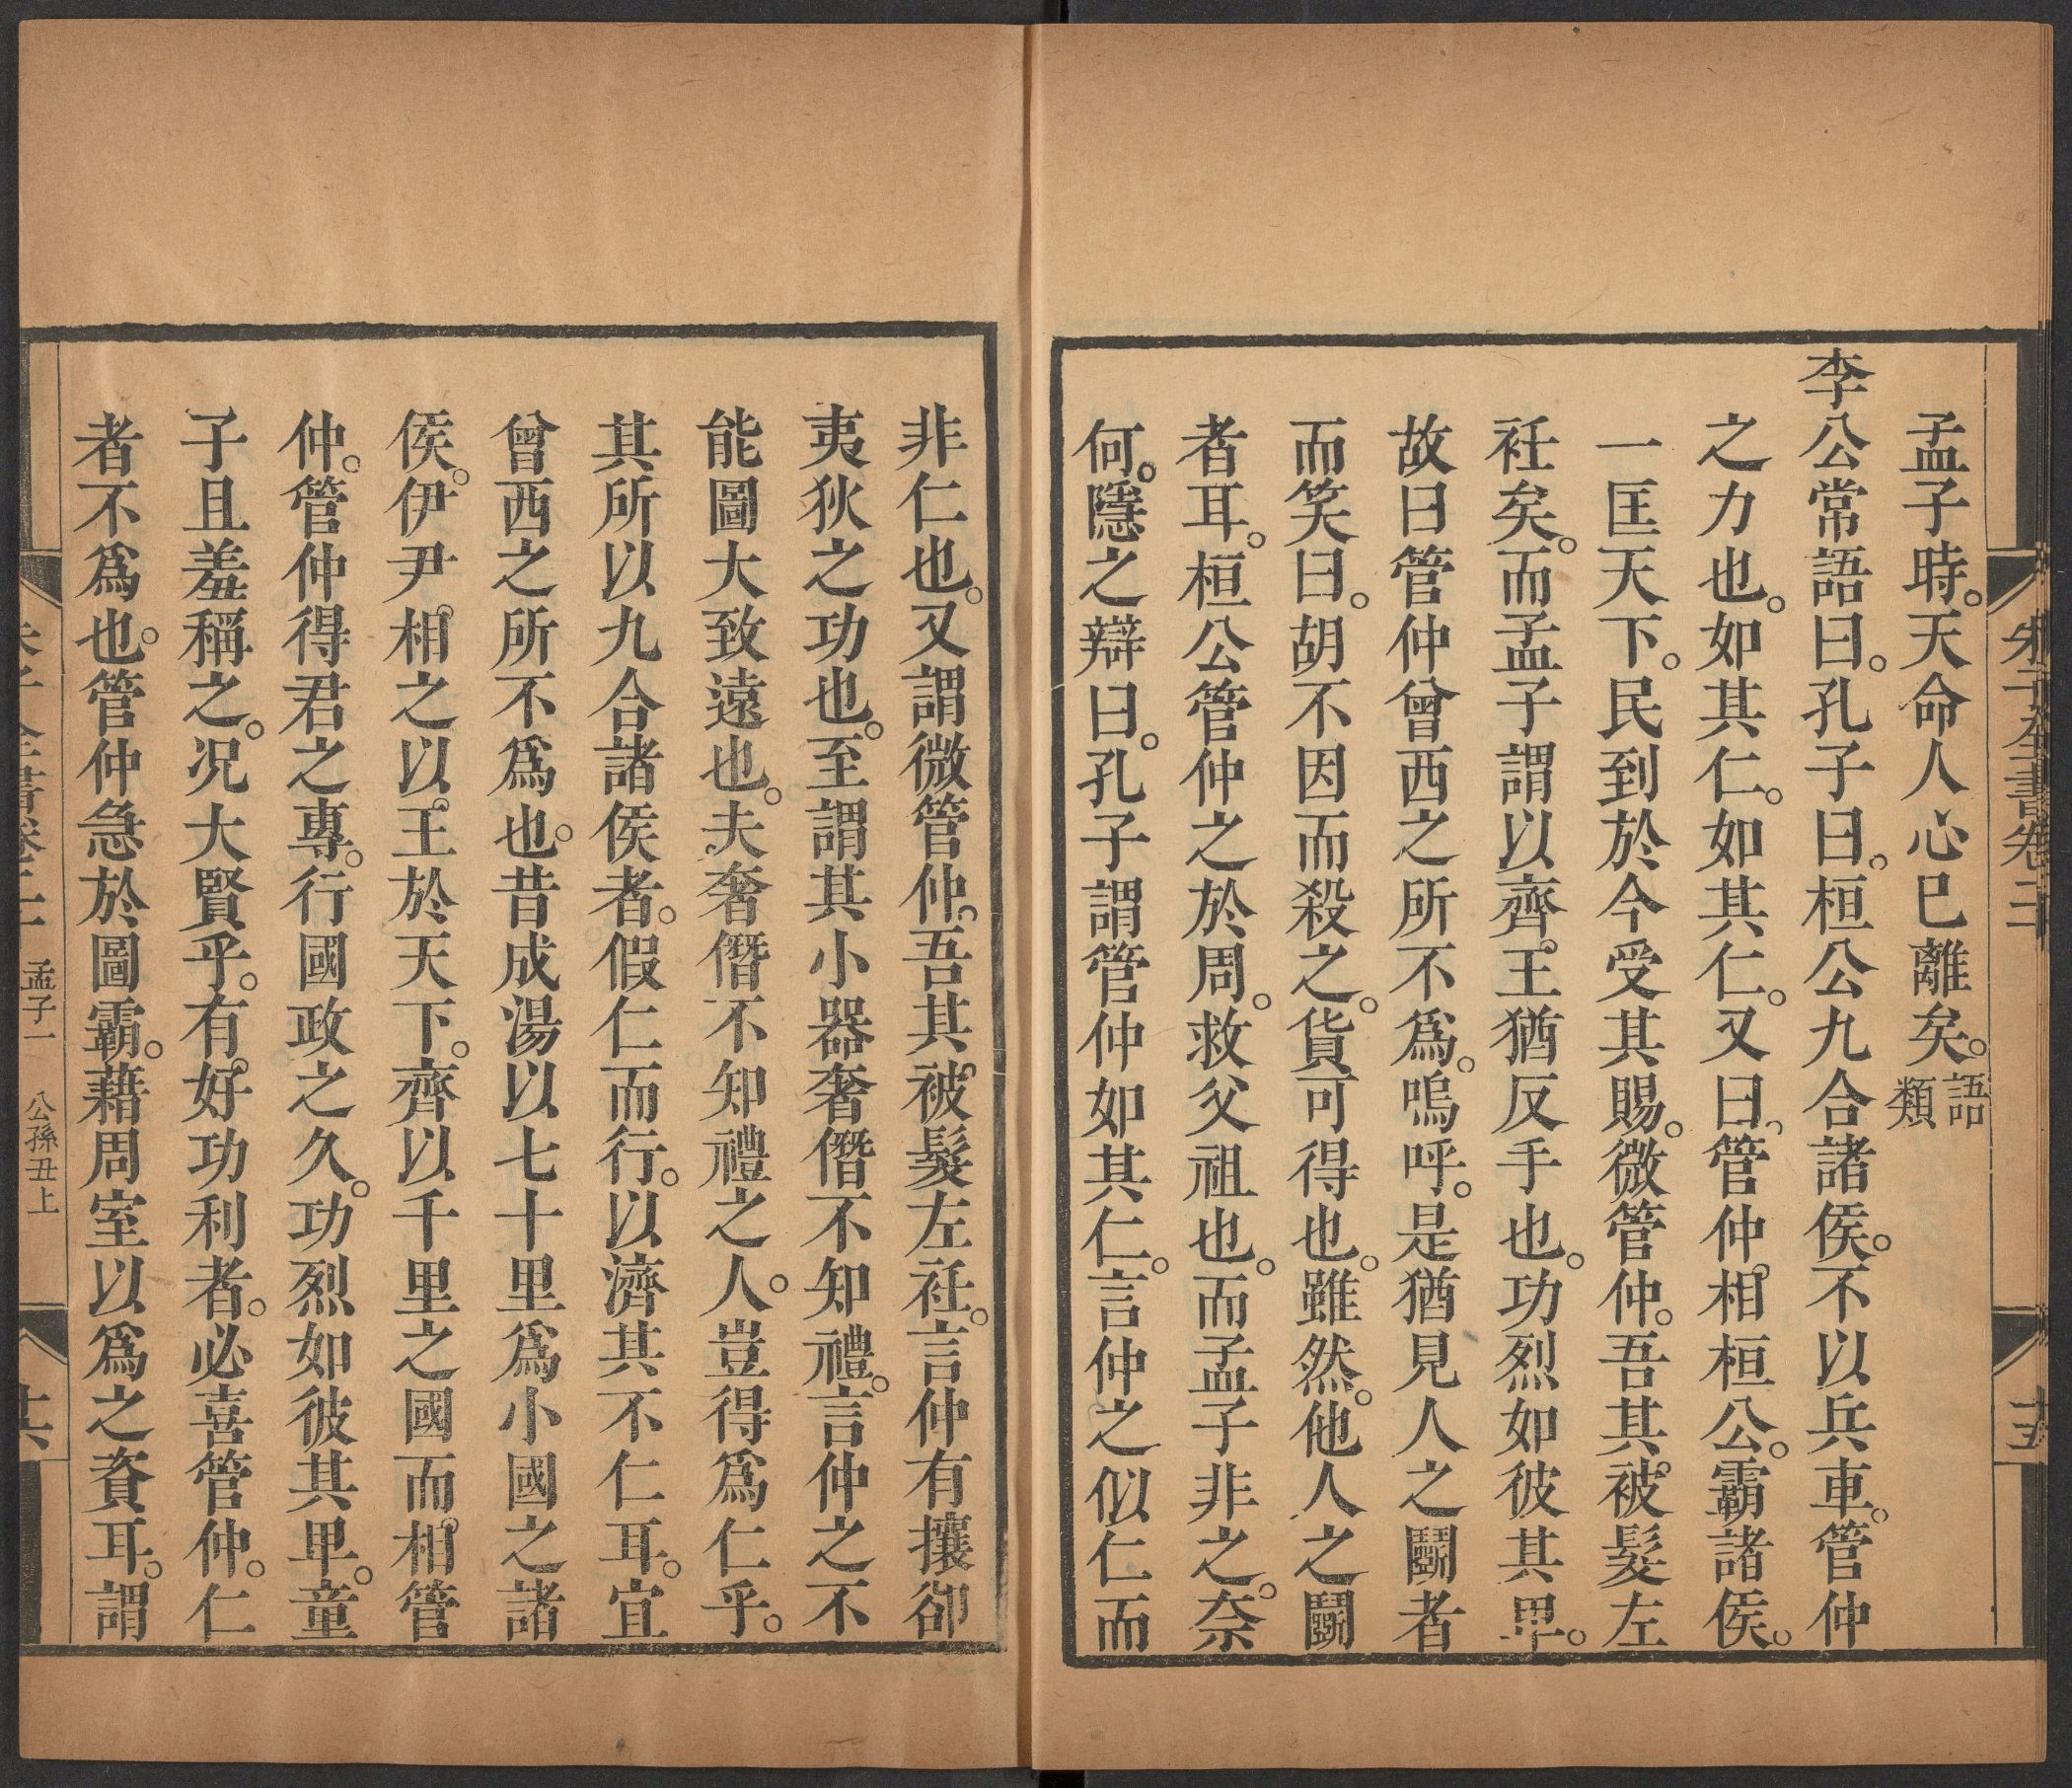 孟子時。天命人心已離矣。語類
李公常語曰。孔子曰。桓公九合諸侯。不以兵車。管仲
之力也。如其仁。如其仁。又曰。管仲。相桓公。霸諸侯。
一匡天下。民到於今受其賜。微管仲。吾其被髮左
衽矣。而孟子謂以齊王猶反手也。功烈如彼其卑。
故曰管仲曾西之所不爲。嗚呼。是猶見人之鬭者
而笑曰。胡不因而殺之。貨可得也。雖然。他人之鬭
者耳。桓公管仲之於周。救父祖也。而孟子非之。奈
何。隱之辯曰。孔子謂管仲如其仁。言仲之似仁而
朱子全書卷二
十五
非仁也。又謂微管仲。吾其被髮左衽。言仲有攘卻
夷狄之功也。至謂其小器奢僭不知禮。言仲之不
能圖大致遠也。夫奢僭不知禮之人。豈得爲仁乎。
其所以九合諸侯者。假仁而行。以濟其不仁耳。宜
曾西之所不爲也。昔成湯以七十里爲小國之諸
侯。伊尹相之以王於天下。齊以千里之國而相管
仲。管仲得君之專。行國政之久。功烈如彼其卑。童
子且羞稱之。况大賢乎。有好功利者。必喜管仲。仁
者不爲也。管仲急於圖霸。藉周室以爲之資耳。謂
孟子一 公孫丑上
十六